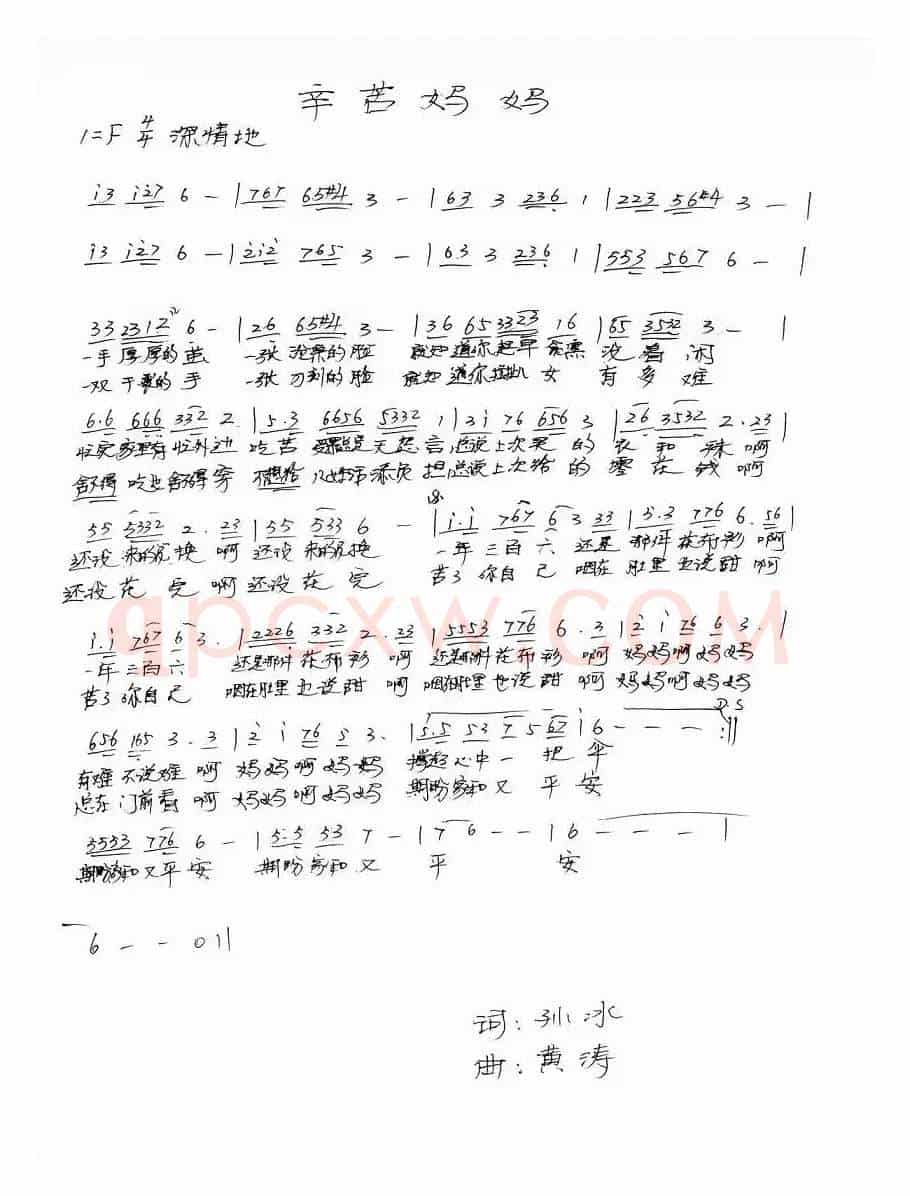 辛苦妈妈
1=F 4/4 深情地
i3 i27 6 - | 767 65#4 3 - | 63 3 236 1 | 223 56#4 3 - |
i3 i27 6 - | 2i2 765 3 - | 63 3 236 1 | 553 567 6 - |
33 2312 6 - | 26 65#4 3 - | 36 65 3323 16 | 65 3532 3 - |
一手厚厚的茧 一张沧桑的脸 谁知道你起早贪黑 没着闲
一双干裂的手 一张刀刻的脸 谁知道你拉扯儿女 有多难
6.6 666 332 2. | 5.3 6656 5332 1 | 3i 76 656 3 | 26 3532 2. 23 |
忙完家里有忙外边 吃苦 无怨言 总说上次买的衣和袜啊
舍得吃也舍得穿 担总说上次给的零花钱啊
55 5332 2. 23 | 55 533 6 - | i.i 767 6 3 33 | 5.3 776 6. 56 |
还没来的及换 啊 还没来的及换 一年三百六 还是那件花布衫 啊
还没花完 啊 还没花完 苦了你自己 咽在肚里也说甜 啊
i.i 767 6 3. | 2226 332 2. 23 | 5553 776 6. 3 | 2 i 76 6 3. |
一年三百六 还是那件花布衫 啊 还是那件花布衫 啊 妈妈啊妈妈
苦了你自己 咽在肚里也说甜 啊 咽在肚里也说甜 啊 妈妈啊妈妈
D.S
656 165 3. 3 | 2 i 76 5 3. | 5.5 53 7 5 67 i | 6 - - - :||
有难不说难 啊 妈妈啊妈妈 撑起心中一把伞
总在门前看 啊 妈妈啊妈妈 期盼家和又平安
3553 776 6 - | 5.5 53 7 - | 7 6 - - | 6 - - - |
期盼家和又平安 期盼家和又 平 安
6 - - 0 ||
词:孙冰
曲:黄涛
qpcxw.com